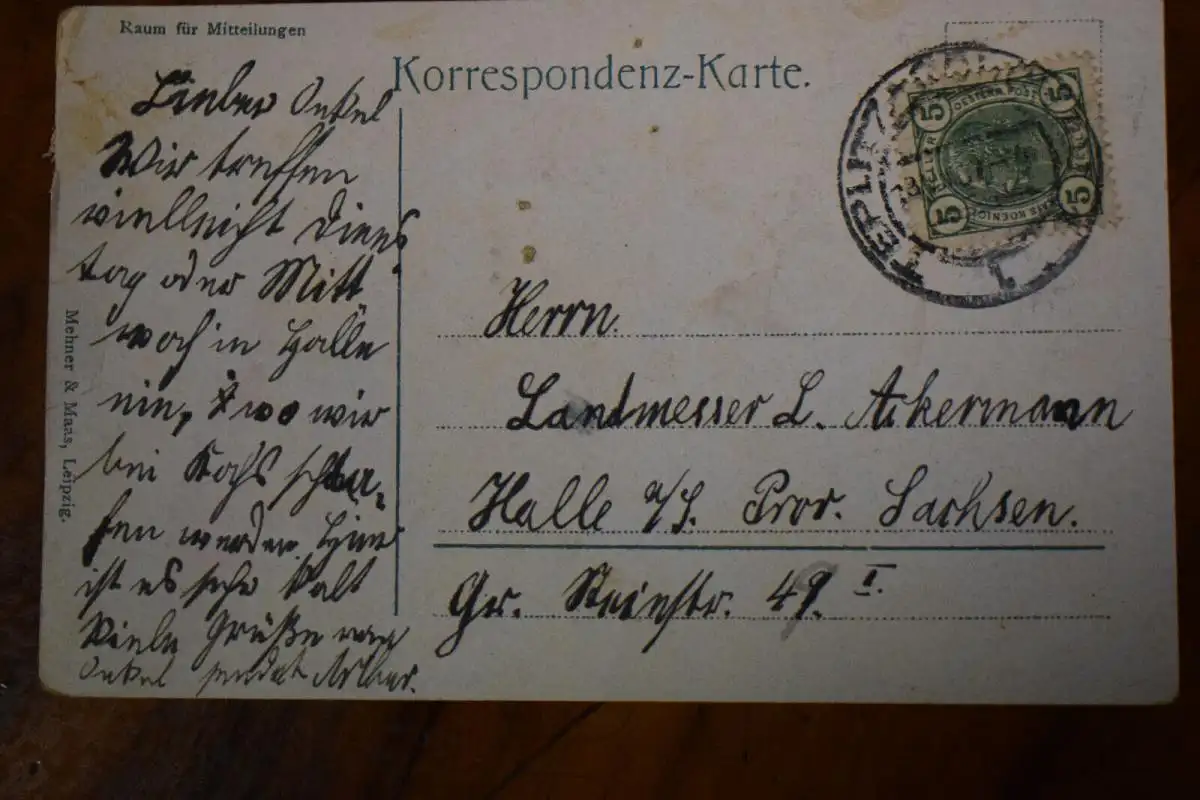 Raum für Mitteilungen
Korrespondenz-Karte.
Lieber Onkel
Wir treffen
vielleicht Diens
tag oder Mitt
woch in Halle
ein, wo wir
bei Kochs schla-
fen werden. Hier
ist es sehr kalt
Viele Grüße
Onkel sendet
Mehner & Maas, Leipzig.
TEPLITZ
1
5 OESTERR. POST 5
5 5
HELLER
Herrn.
Landmesser L. Ackermann
Halle a/S. Prov. Sachsen.
Gr. Steinstr. 49. I.